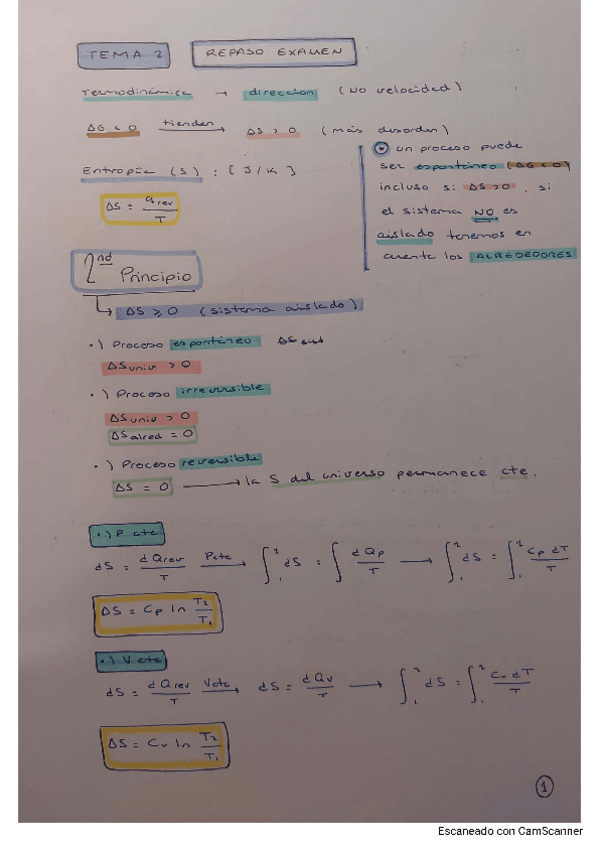 TEMA 2 REPASO EXAMEN
Termodinámica → direccion (NO velocidad)
ΔG < 0 tienden → ΔS > 0 (más desorden)
Entropía (S) : [J/K]
ΔS = Qrev / T
⊛ un proceso puede
ser espontáneo (ΔG < 0)
incluso si ΔS > 0, si
el sistema NO es
aislado tenemos en
cuenta los ALREDEDORES
2nd Principio
↳ ΔS ≥ 0 (sistema aislado)
·) Proceso espontáneo
ΔSuniv > 0
·) Proceso irreversible
ΔSuniv > 0
ΔSalred = 0
·) Proceso reversible
ΔS = 0 → la S del universo permanece cte.
·) P cte
dS = dQrev / T Pcte → ∫₁² dS = ∫ dQp / T → ∫₁² dS = ∫₁² Cp dT / T
ΔS = Cp ln T2 / T1
·) V cte
dS = dQrev / T Vcte → dS = dQv / T → ∫₁² dS = ∫₁² Cv dT / T
ΔS = Cv ln T2 / T1
1
Escaneado con CamScanner